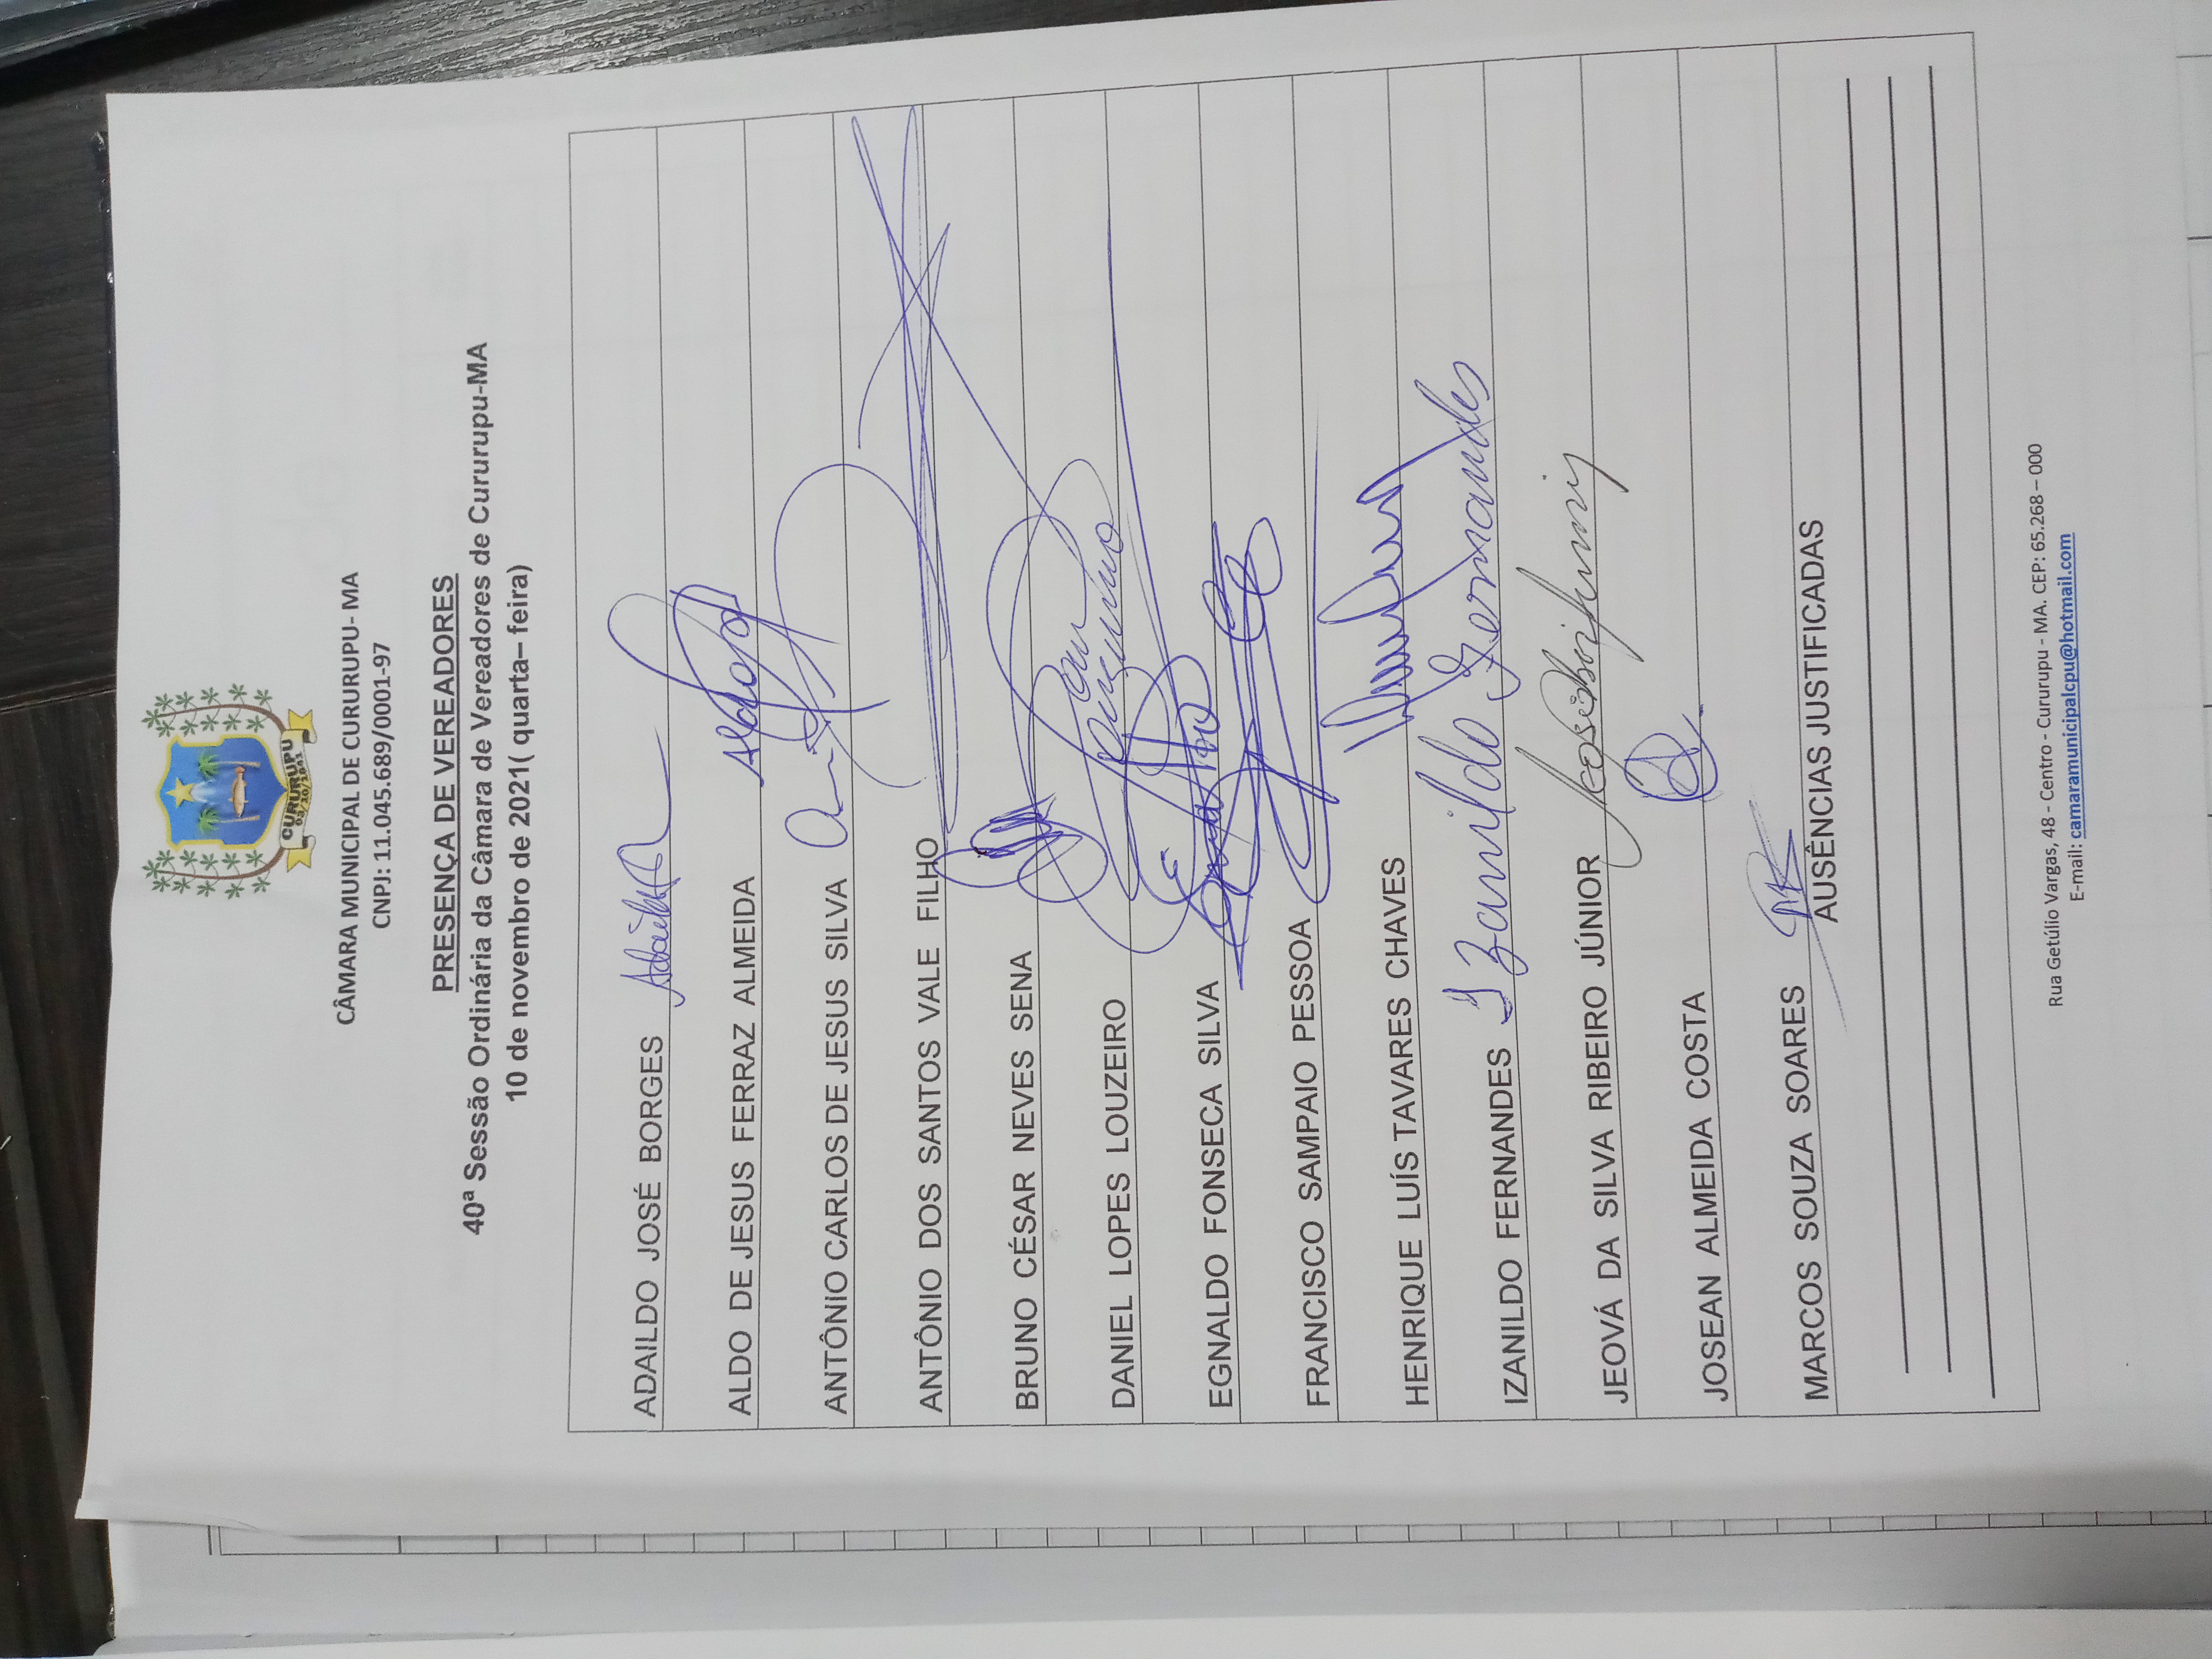 CURURUPU
03/10/1841
CÂMARA MUNICIPAL DE CURURUPU- MA
CNPJ: 11.045.689/0001-97
PRESENÇA DE VEREADORES
40ª Sessão Ordinária da Câmara de Vereadores de Cururupu-MA
10 de novembro de 2021( quarta– feira)
ADAILDO JOSÉ BORGES
ALDO DE JESUS FERRAZ ALMEIDA
ANTÔNIO CARLOS DE JESUS SILVA
ANTÔNIO DOS SANTOS VALE FILHO
BRUNO CÉSAR NEVES SENA
DANIEL LOPES LOUZEIRO
EGNALDO FONSECA SILVA
FRANCISCO SAMPAIO PESSOA
HENRIQUE LUÍS TAVARES CHAVES
IZANILDO FERNANDES Izanildo Fernandes
JEOVÁ DA SILVA RIBEIRO JÚNIOR
JOSEAN ALMEIDA COSTA
MARCOS SOUZA SOARES
AUSÊNCIAS JUSTIFICADAS
Rua Getúlio Vargas, 48 - Centro - Cururupu - MA. CEP: 65.268 – 000
E-mail: camaramunicipalcpu@hotmail.com